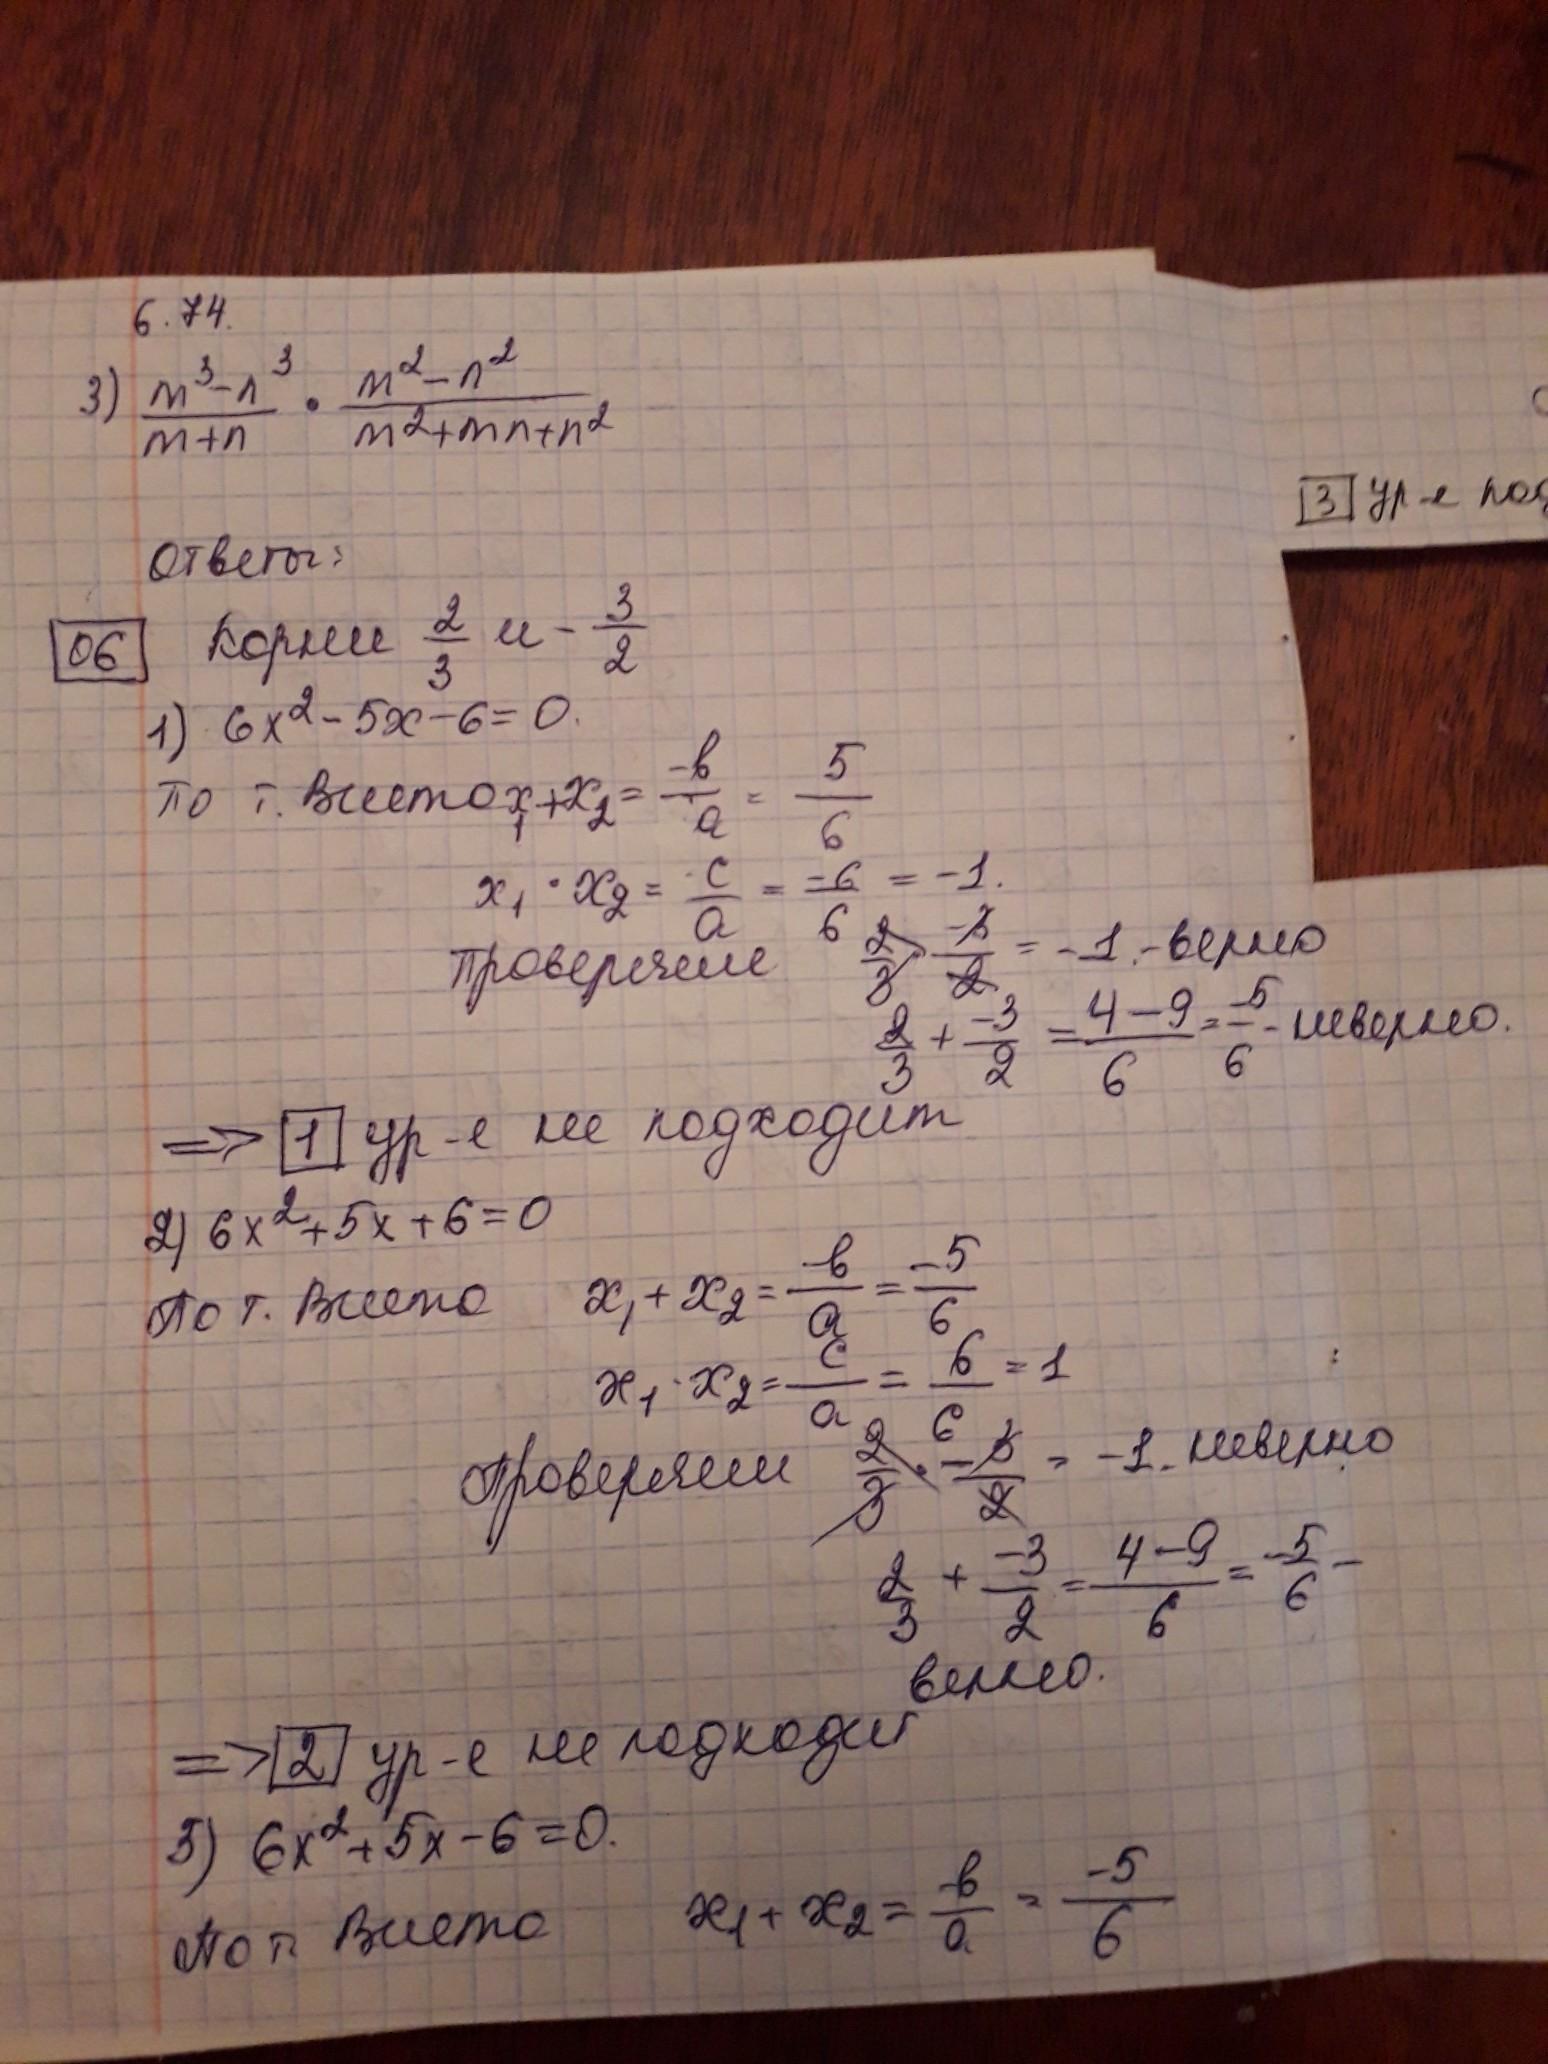 6.74.
3) (m³-n³)/(m+n) · (m²-n²)/(m²+mn+n²)
[3] ур-е
Ответы:
[06] Корни 2/3 и -3/2
1) 6x²-5x-6=0.
По т. Виета x₁+x₂= -b/a = 5/6
x₁·x₂= c/a = -6/6 = -1.
Проверяем 2/3 · -3/2 = -1.-верно
2/3 + -3/2 = (4-9)/6 = -5/6 - неверно.
=> [1] ур-е не подходит
2) 6x²+5x+6=0
По т. Виета x₁+x₂= -b/a = -5/6
x₁·x₂= c/a = 6/6 = 1
Проверяем 2/3 · -3/2 = -1. неверно
2/3 + -3/2 = (4-9)/6 = -5/6 -
верно.
=> [2] ур-е не подходит
3) 6x²+5x-6=0.
По т. Виета x₁+x₂= -b/a = -5/6